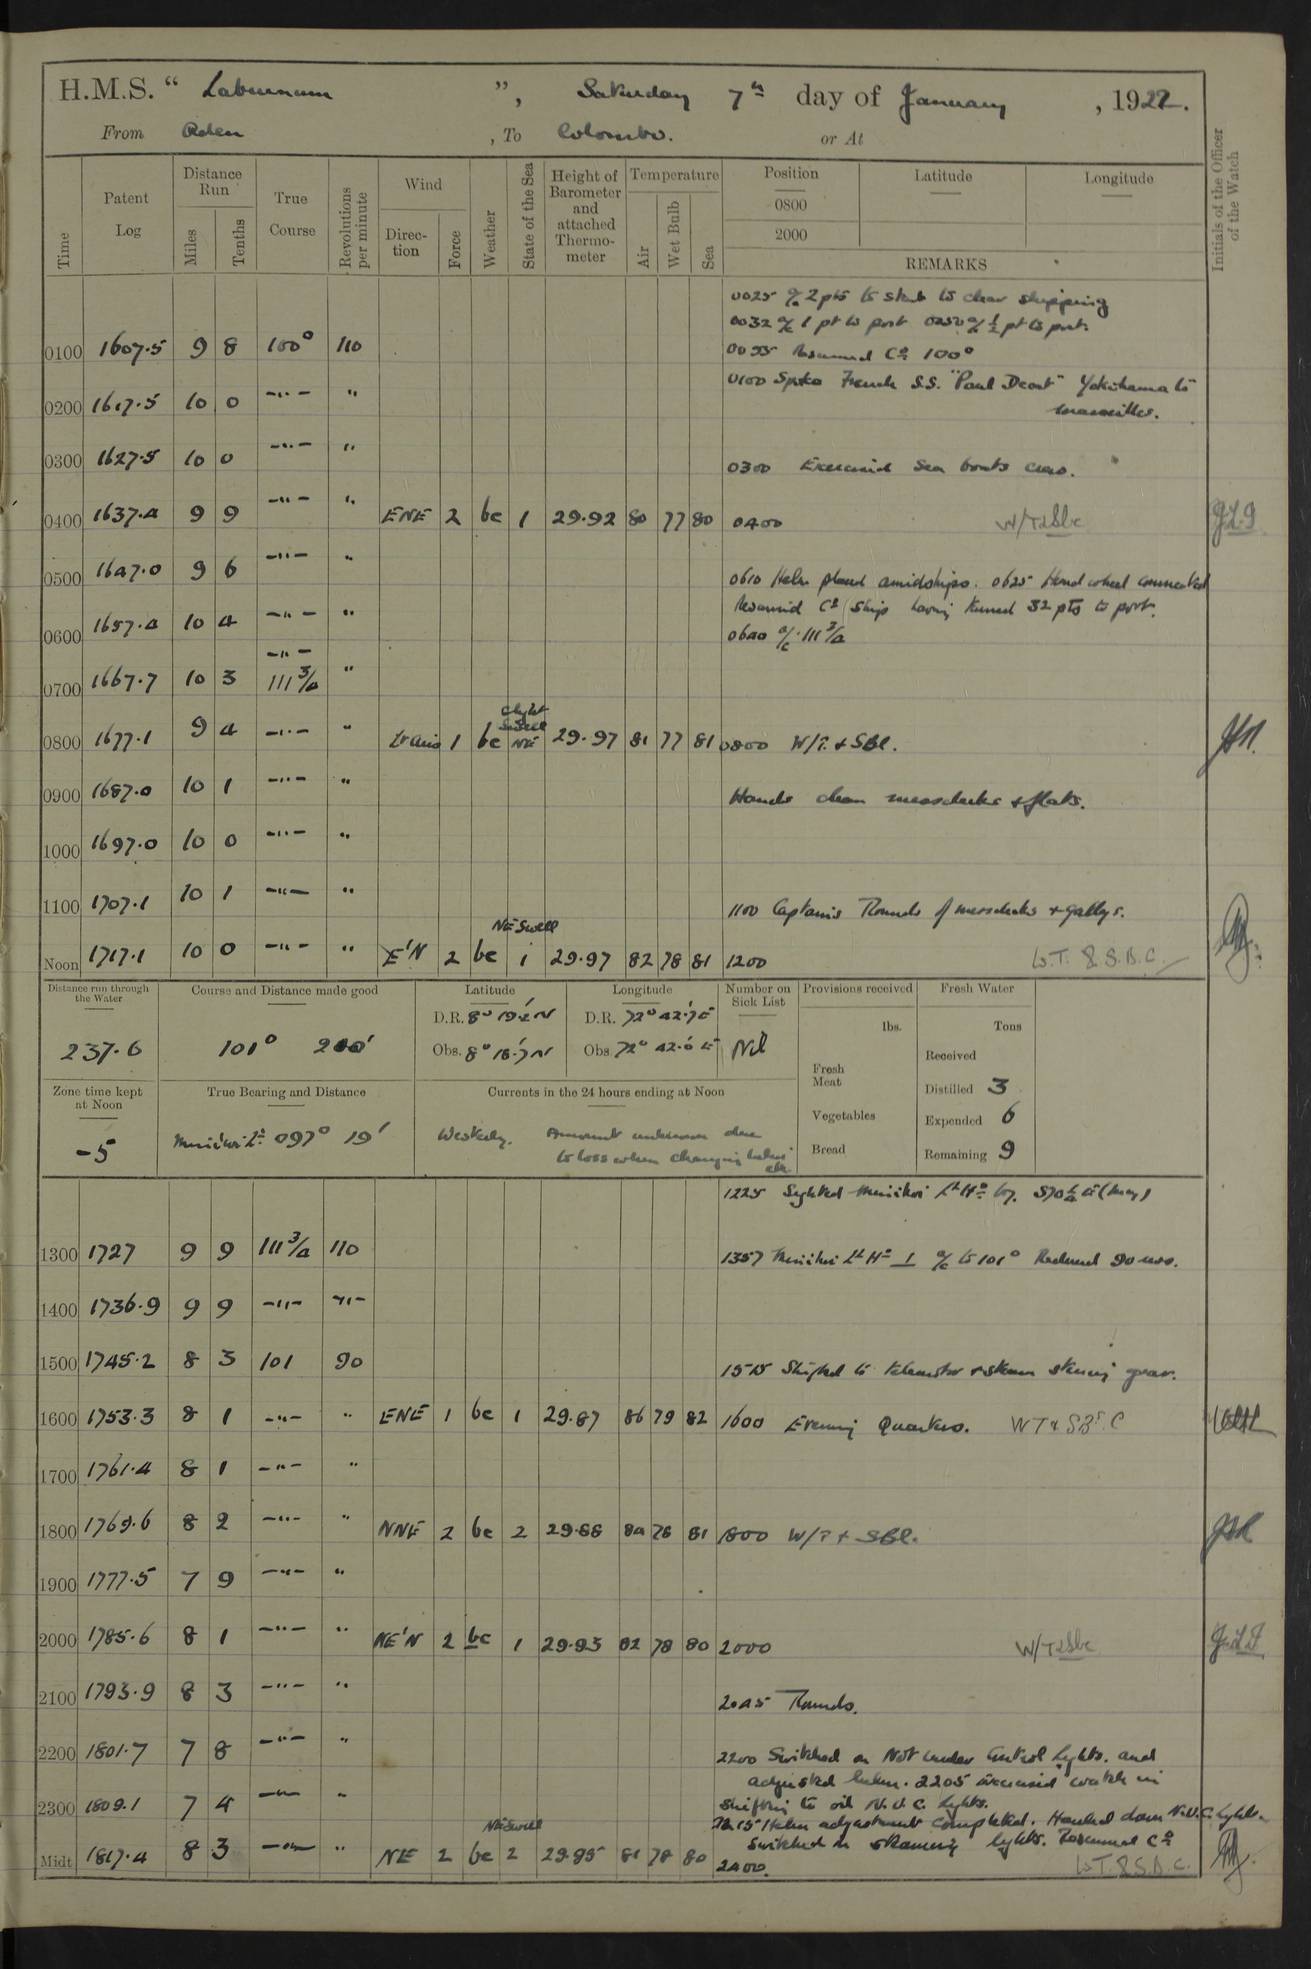 H.M.S. " Laburnum ", Saturday 7th day of January, 1922.
From Aden, To Colombo. or At
Time
Patent Log
Distance Run
Miles
Tenths
True Course
Revolutions per minute
Wind
Direction
Force
Weather
State of the Sea
Height of Barometer and attached Thermometer
Temperature
Air
Wet Bulb
Sea
Position
0800
2000
Latitude
Longitude
REMARKS
Initials of the Officer of the Watch
0025 a/c 2 pts to stbd to clear shipping
0032 a/c 1 pt to port a/c ½ pt to port.
0100 1607.5 9 8 100° 110 Resumed Co 100°
0100 Spoke French S.S. "Paul " Yokohama to
0200 1617.5 10 0 —"— " Marseilles.
0300 1627.5 10 0 —"— " 0300 Exercised Sea boats crew.
0400 1637.4 9 9 —"— " ENE 2 bc 1 29.92 80 77 80 0400 W/T & Sbc
0500 1647.0 9 6 —"— "
0610 Helm placed amidships. 0625 Hand wheel connected
Resumed Co (Ships having turned 32 pts to port.
0600 1657.4 10 4 —"— " 0640 a/c 111 3/4
—"—
0700 1667.7 10 3 111 3/4 "
Slight Swell
0800 1677.1 9 4 —"— " Lt airs 1 bc NE 29.97 81 77 81 0800 W/T. & SBC.
0900 1687.0 10 1 —"— " Hands clean messdecks & flats.
1000 1697.0 10 0 —"— "
1100 1707.1 10 1 —"— " 1100 Captains Rounds of messdecks & galleys.
NE Swell
Noon 1717.1 10 0 —"— " E'N 2 bc 1 29.97 82 78 81 1200 W.T. & S.B.C.
Distance run through the Water
237.6
Course and Distance made good
101°
Latitude
D.R. 8° 19.2 N
Obs. 8° 18.7 N
Longitude
D.R. 72° 42.7 E
Obs. 72° 42.0 E
Number on Sick List
Nil
Provisions received
lbs.
Fresh Meat
Vegetables
Bread
Fresh Water
Tons
Received
Distilled 3
Expended 6
Remaining 9
Zone time kept at Noon
-5
True Bearing and Distance
Minikoi Lt. 097° 19'
Currents in the 24 hours ending at Noon
Westerly. Amount unknown due
to loss when changing
etc.
1225 Sighted Minikoi Lt Ho bg. (mag)
1300 1727 9 9 111 3/4 110 1357 Minikoi Lt Ho ⊥ a/c to 101° Reduced 90 revs.
1400 1736.9 9 9 —"— —"—
1500 1745.2 8 3 101 90
1515 Shifted to telemotor & steam steering gear.
1600 1753.3 8 1 —"— " ENE 1 bc 1 29.87 86 79 82 1600 Evening Quarters. WT & SBC
1700 1761.4 8 1 —"— "
1800 1769.6 8 2 —"— " NNE 2 bc 2 29.88 84 78 81 1800 W/T & SBC.
1900 1777.5 7 9 —"— "
2000 1785.6 8 1 —"— " NE'N 2 bc 1 29.93 82 78 80 2000 W/T & Sbc
2100 1793.9 8 3 —"— " 2045 Rounds.
2200 1801.7 7 8 —"— " 2200 Switched on Not under Control lights. and
adjusted helm. 2205 Exercised watch in
2300 1809.1 7 4 —"— " shifting to oil N.U.C. lights.
2215 Helm adjustment completed. Hauled down N.U.C. lights.
NE Swell
Switched on steaming lights. Resumed Co
Midt 1817.4 8 3 —"— " NE 2 bc 2 29.95 81 78 80 2400. W.T. & S.B.C.